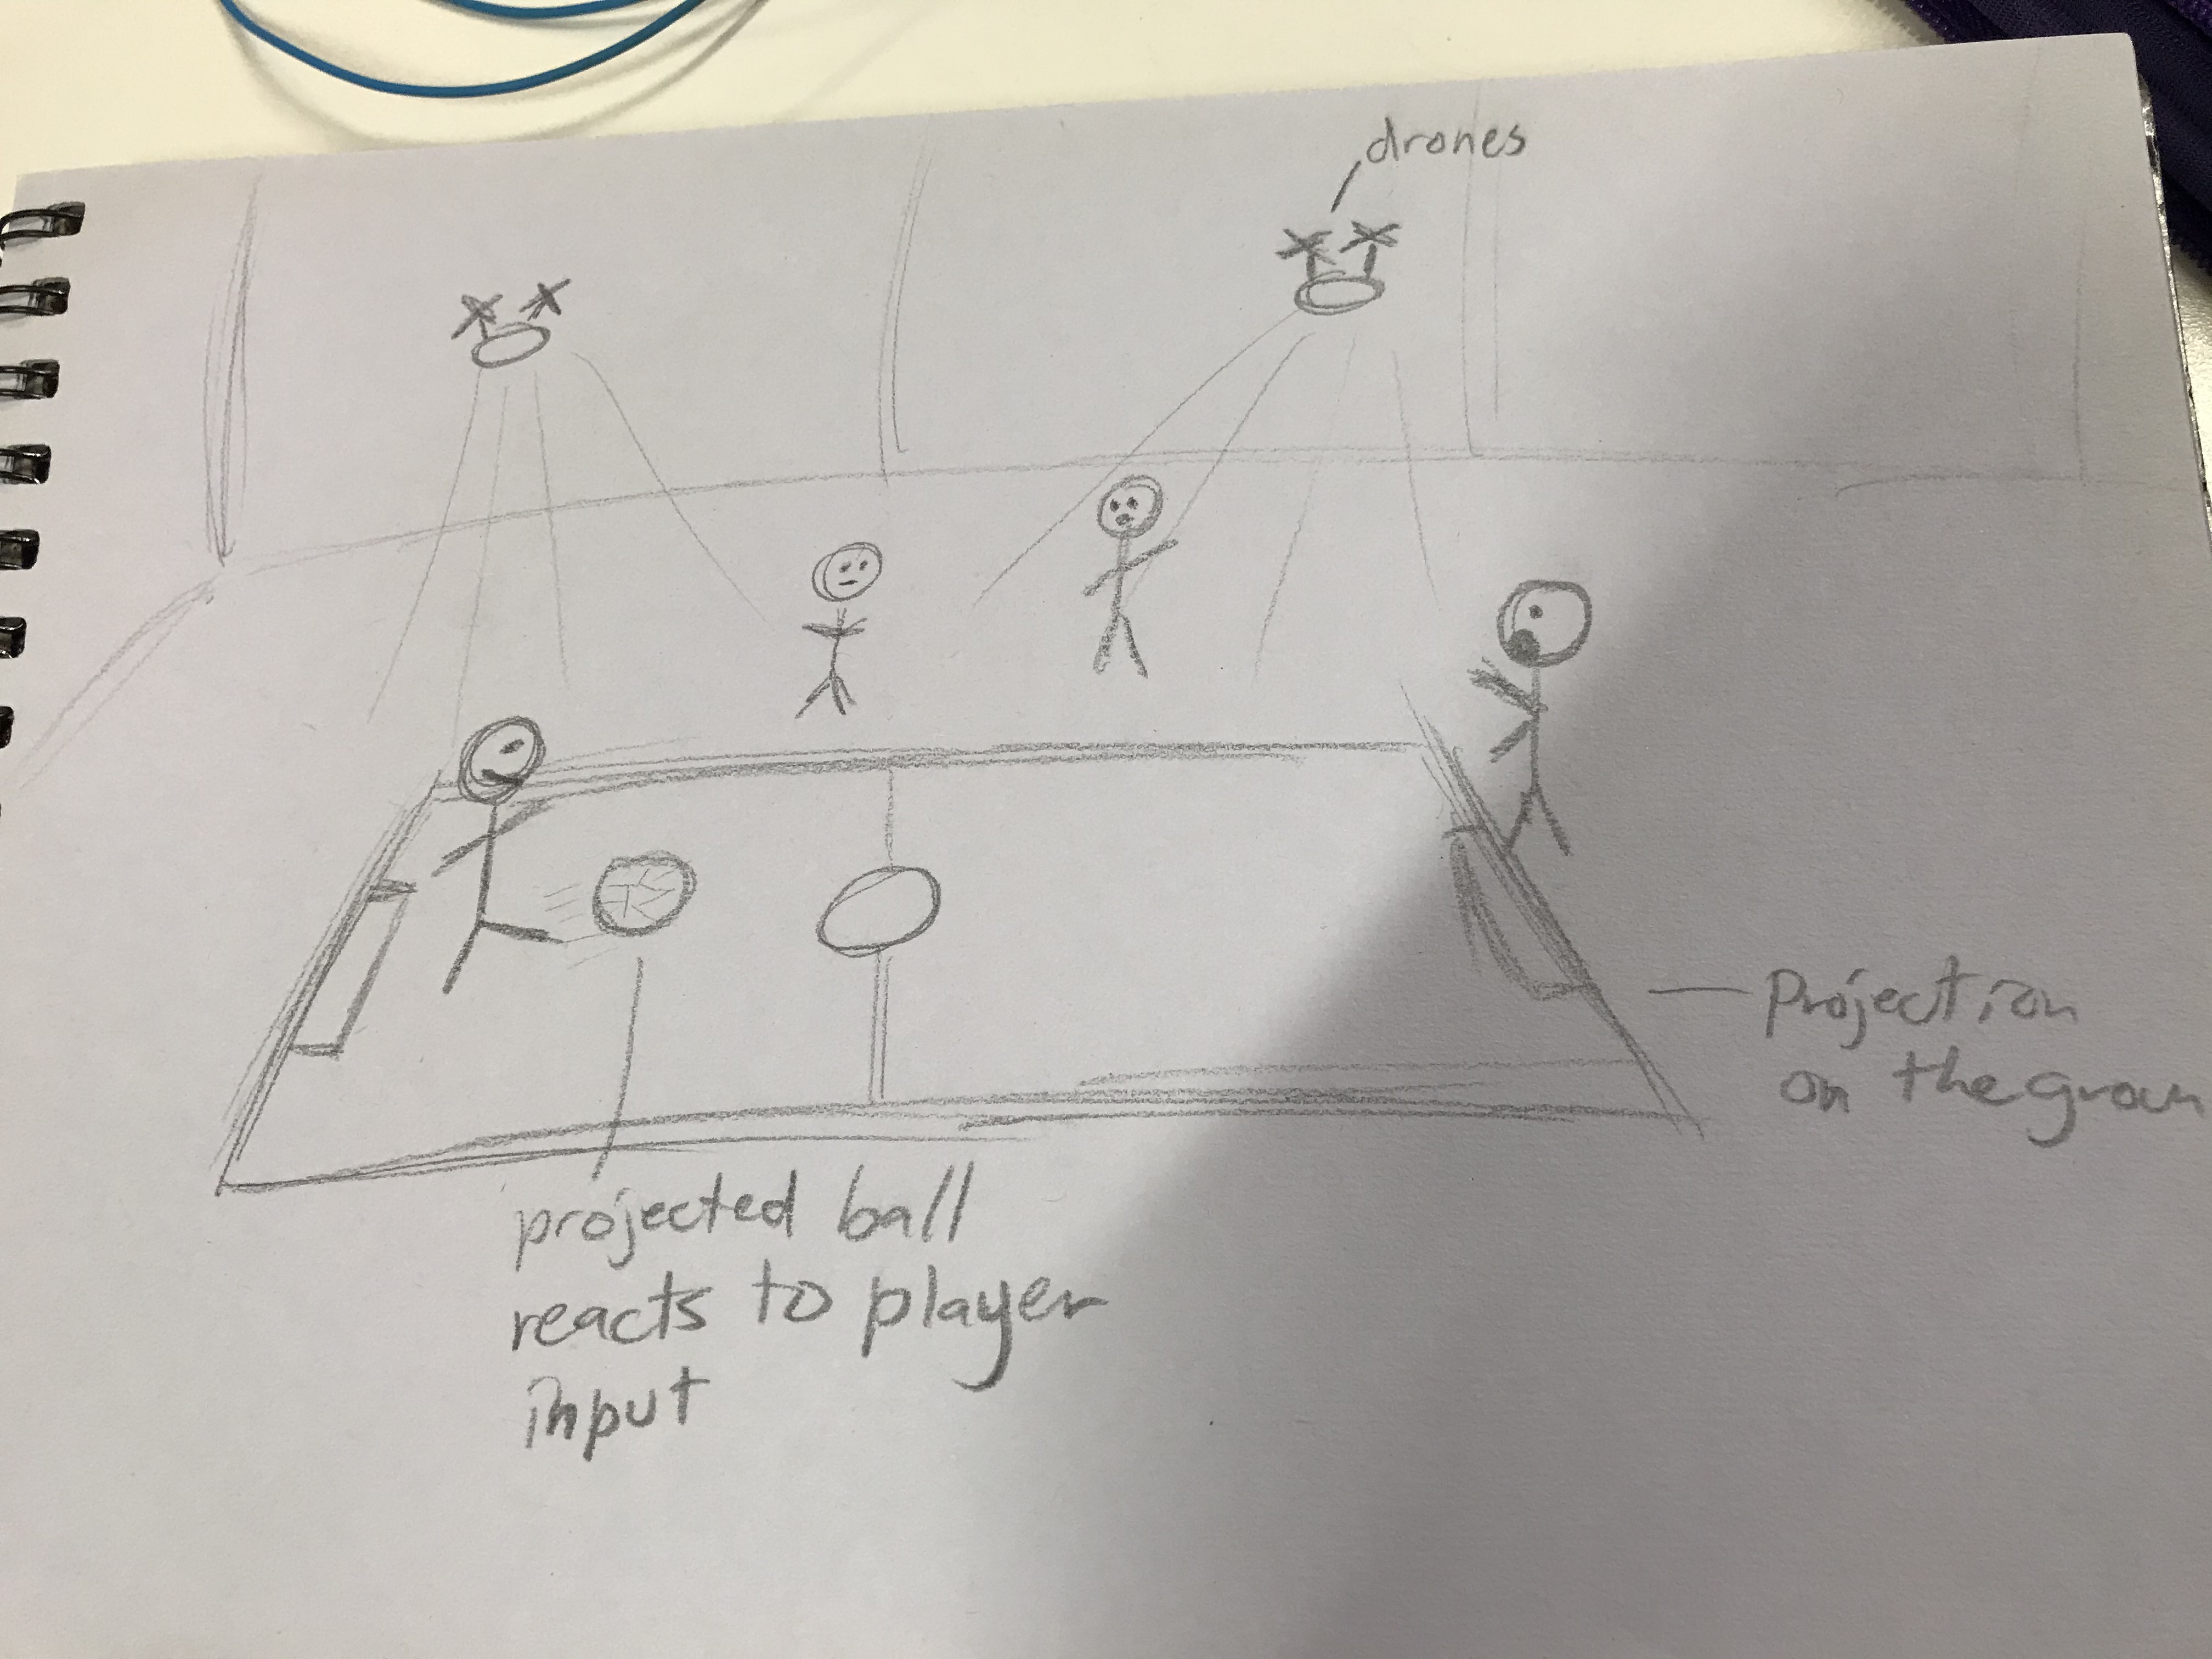 drones
Projection
on the groun
projected ball
reacts to player
input